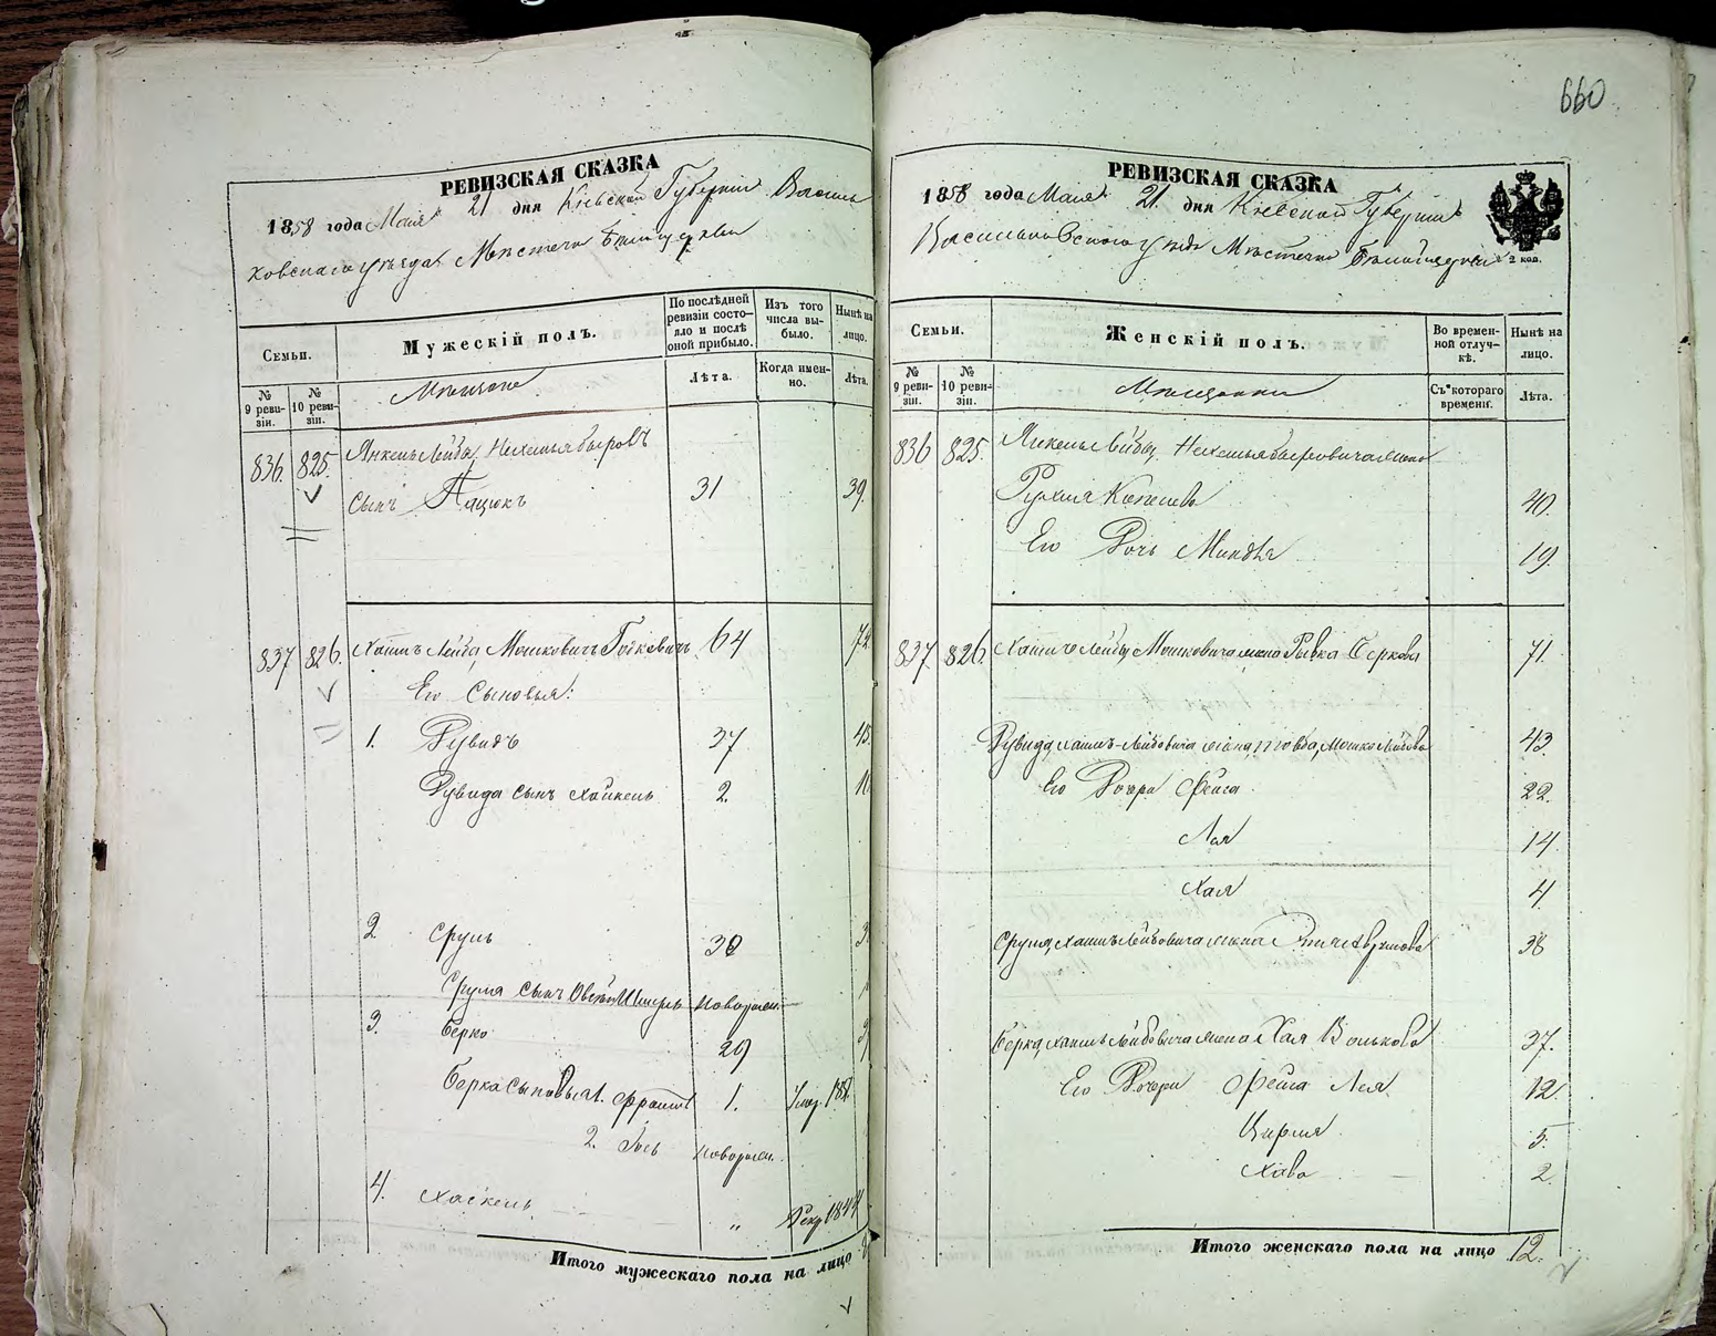 660
РЕВИЗСКАЯ СКАЗКА
1858 года Маія 21 дня Кіевской Губерніи Василь
ковскаго уѣзда Мѣстечка Бѣлоцеркви
Семьи.
Мужескій полъ.
По послѣдней ревизіи состояло и послѣ оной прибыло.
Изъ того числа выбыло.
Нынѣ на лицо.
№ 9 ревизіи.
№ 10 ревизіи.
Мѣщане
Лѣта.
Когда именно.
Лѣта.
836. 825. Янкель Лейба
сынъ Пацюкъ 31 39.
837 826. Хаимъ Лейба Мошковичъ 64
Его Сыновья:
1. Дувидъ 37 45.
Дувида сынъ Хайкель 2. 10
2 Сруль 30 3
Сруля сынъ Новорожд.
3. Берко 29 3
Берка сыновья 1. 1. Умер. 185
2. Новорожд.
4. Хаскель „ Рекр. 1844
Итого мужескаго пола на лицо
РЕВИЗСКАЯ СКАЗКА
1858 года Маія 21. дня Кіевской Губерніи
Васильковскаго уѣзда Мѣстечка Бѣлоцеркви
2 коп.
Семьи.
Женскій полъ.
Во временной отлучкѣ.
Нынѣ на лицо.
№ 9 ревизіи.
№ 10 ревизіи.
Мѣщанки
Съ котораго времени.
Лѣта.
836 825. Янкель Лейбы жена
Рухля 40.
Его Дочь Миндля 19.
837. 826. Хаимъ Лейбы Мошковича жена Рывка Беркова 71.
Дувида Хаимъ-Лейбовича жена Мошко Лейбова 43.
Его Дочери Фейга 22.
Лея 14.
Хая 4.
Сруля Хаимъ Лейбовича жена 38
Берка Хаимъ Лейбовича жена Хая Волькова 37.
Его Дочери Фейга Лея 12.
Цирля 5.
Хава 2.
Итого женскаго пола на лицо 12.